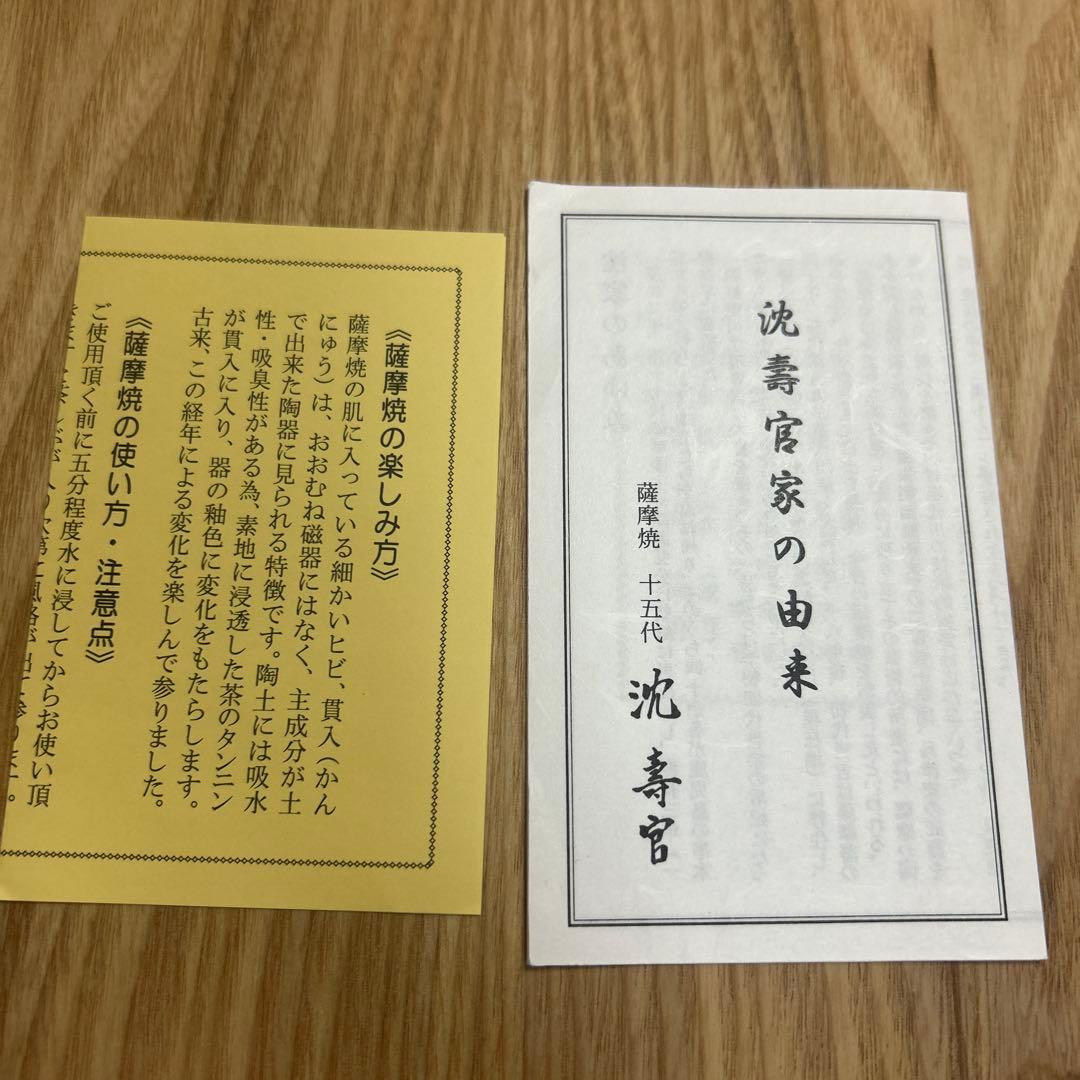 沈壽官家の由来
薩摩焼 十五代 沈壽官
《薩摩焼の楽しみ方》
薩摩焼の肌に入っている細かいヒビ、貫入（かん
にゅう）は、おおむね磁器にはなく、主成分が土
で出来た陶器に見られる特徴です。陶土には吸水
性・吸臭性がある為、素地に浸透した茶のタンニン
が貫入に入り、器の釉色に変化をもたらします。
古来、この経年による変化を楽しんで参りました。
《薩摩焼の使い方・注意点》
ご使用頂く前に五分程度水に浸してからお使い頂